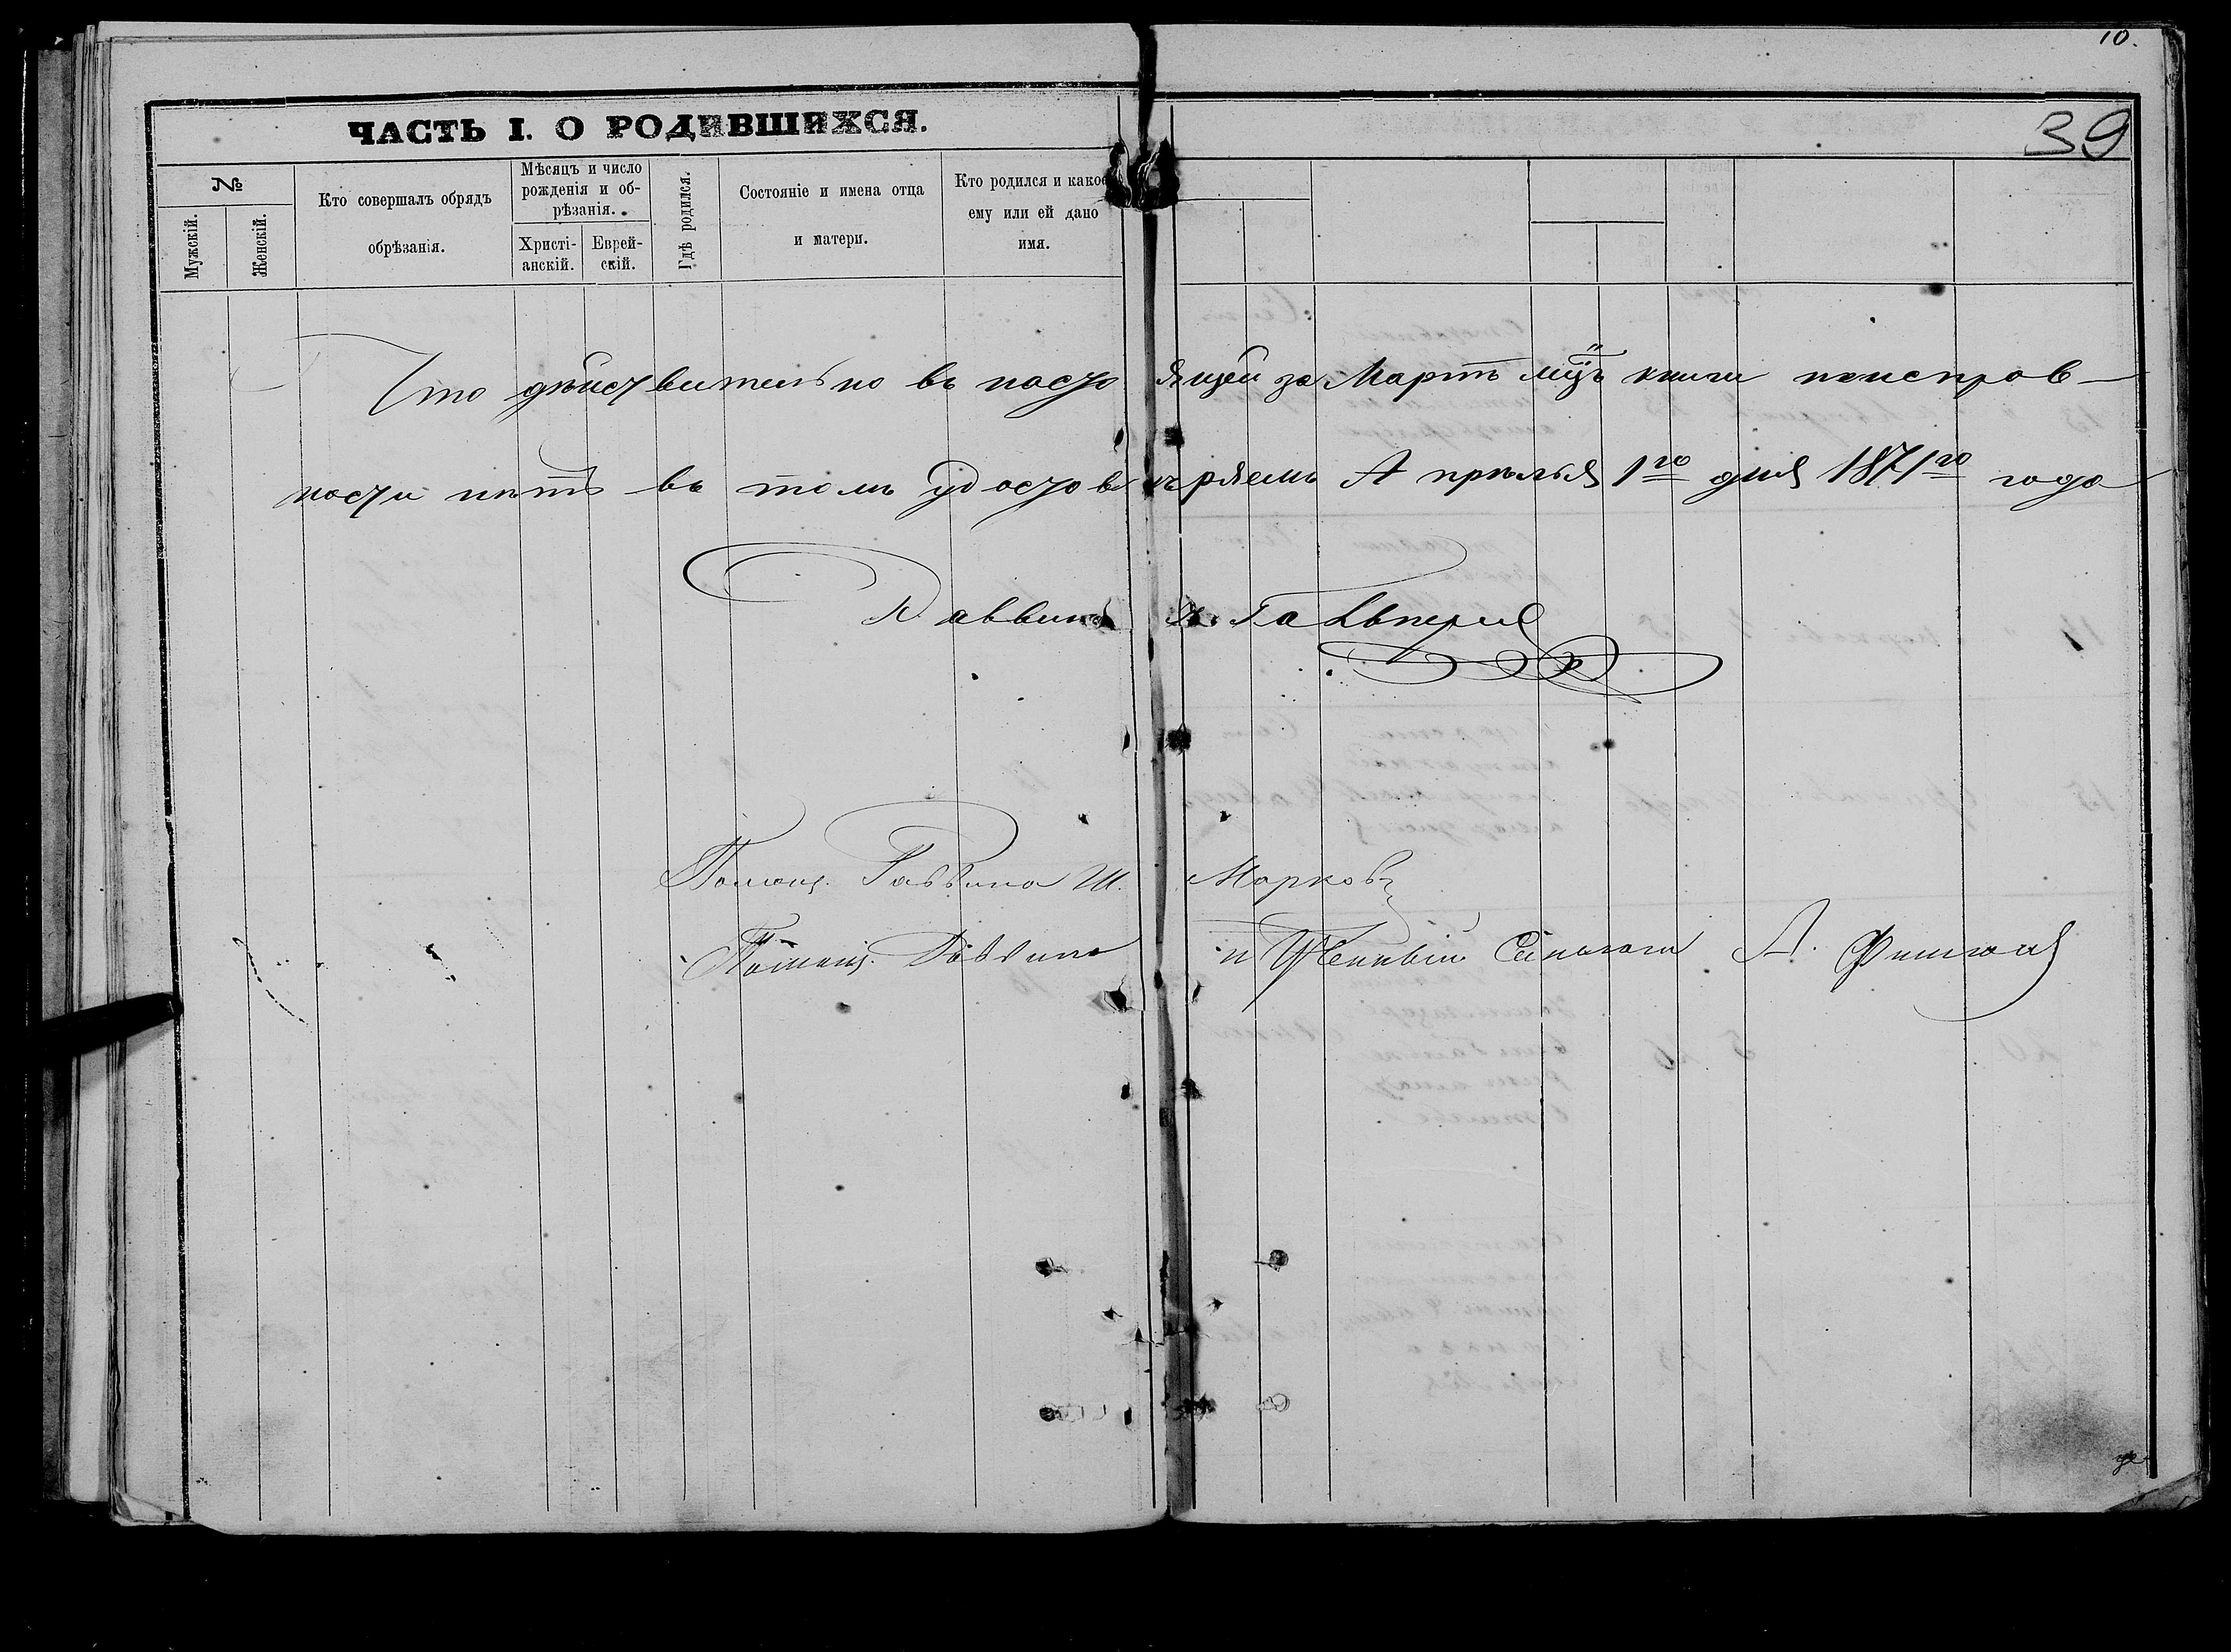 10.
39
ЧАСТЬ I. О РОДИВШИХСЯ.
№
Мужскій.
Женскій.
Кто совершалъ обрядъ
обрѣзанія.
Мѣсяцъ и число
рожденія и об-
рѣзанія.
Христі-
анскій.
Еврей-
скій.
Гдѣ родился.
Состояніе и имена отца
и матери.
Кто родился и какое
ему или ей дано
имя.
Что дѣйствительно въ настоящей за Мартъ м͠цъ книги неисправ-
ности нѣтъ въ томъ удостовѣряемъ Апрѣля 1го дня 1871го года
Раввинъ
Помощ. Раввина Ш. Марковъ
Помощ. Раввина и Ученный Синагоги А.